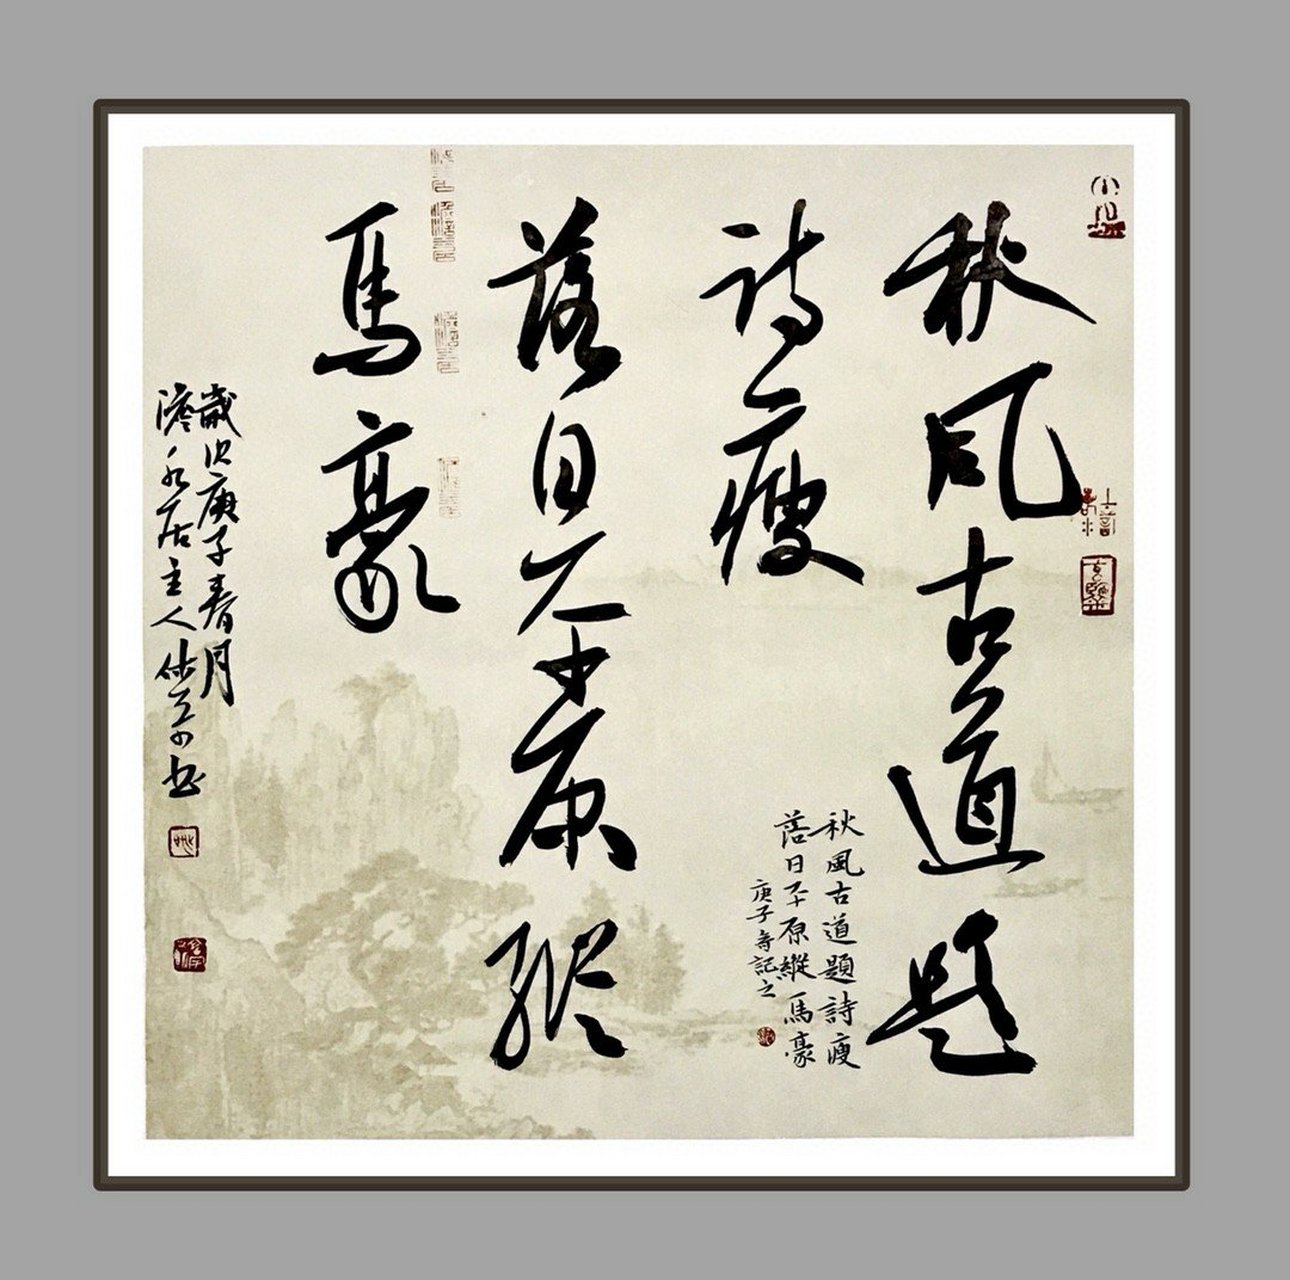 秋風古道題
詩瘦
落日平原縱
馬豪
秋風古道題詩瘦
落日平原縱馬豪
庚子記之
歲次庚子春月
居主人書